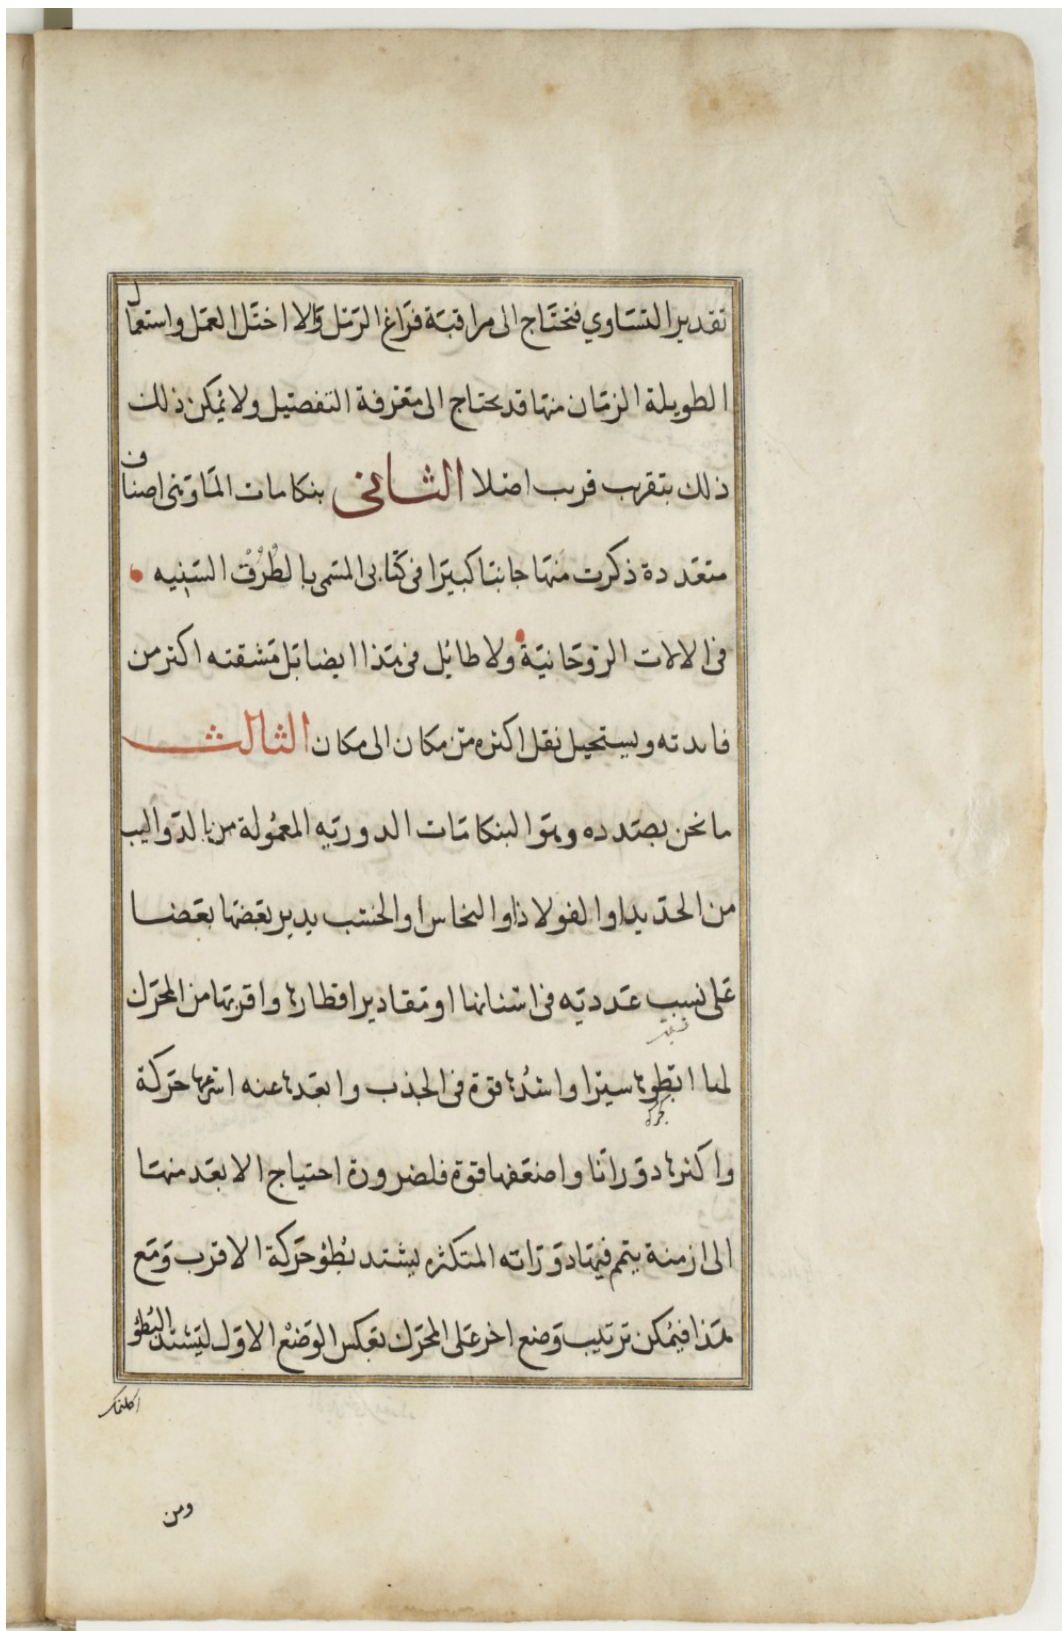 تقدير التساوي فتحتاج الى مراقبة فراغ الرمل والا اختل العمل واستعمال
الطويلة الزمان منها قد يحتاج الى معرفة التفصيل ولا يمكن ذلك
ذلك بتقريب قريب اصلا الثاني بنكامات الماء وهى اصناف
متعددة ذكرت منها جانبا كبيرا فى كتابى المسمى بالطرق السنيه
فى الالات الروحانية ولا طائل فى هذا ايضا بل مشقته اكثر من
فايدته ويستحيل نقل اكثره من مكان الى مكان الثالث
ما نحن بصدده وهو البنكامات الدوريه المعمولة من بالدواليب
من الحديد او الفولاذ او النحاس او الخشب يدير بعضها بعضا
على نسب عدديه فى اسنانها او مقادير اقطارها واقربها من المحرك
لها ابطوها سيرا واشدها قوة فى الجذب وابعدها عنه اسرعها حركة
واكثرها دورانا واضعفها قوة فلضرورة احتياج الابعد منها
الى ازمنة يتم فيها دوراته المتكثره يشتد بطؤ حركة الاقرب ومع
هذا فيمكن ترتيب وضع اخر على المحرك بعكس الوضع الاول ليشتد البطؤ
ومن